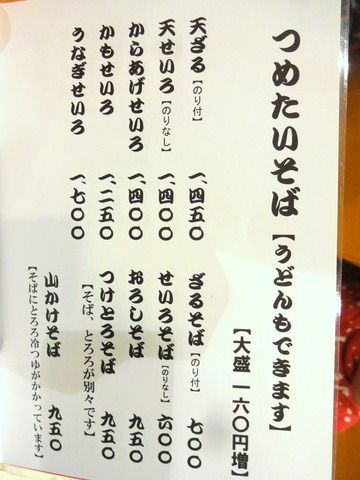 つめたいそば【うどんもできます】
【大盛 一六〇円増】
天ざる【のり付】 一、四五〇
天せいろ【のりなし】 一、四〇〇
からあげせいろ 一、四〇〇
かもせいろ 一、二五〇
うなぎせいろ 一、七〇〇
ざるそば【のり付】 七〇〇
せいろそば【のりなし】 六〇〇
おろしそば 九五〇
つけとろそば 九五〇
【そば、とろろが別々です】
山かけそば 九五〇
【そばにとろろ冷つゆがかかっています】